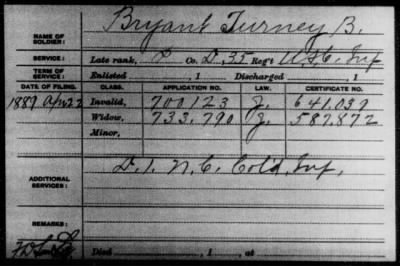 NAME OF SOLDIER: Bryant Turney B.
SERVICE: Late rank, P Co. D, 35 Reg't U.S.C. Inf
TERM OF SERVICE: Enlisted , 1 Discharged , 1
DATE OF FILING. CLASS. APPLICATION NO. LAW. CERTIFICATE NO.
1889 Apr 22 Invalid, 700123 J. 641.039
Widow, 733,790 J. 587,872
Minor,
ADDITIONAL SERVICES: D. 1. N.C. Col'd Inf.
REMARKS:
Died , 1 , at